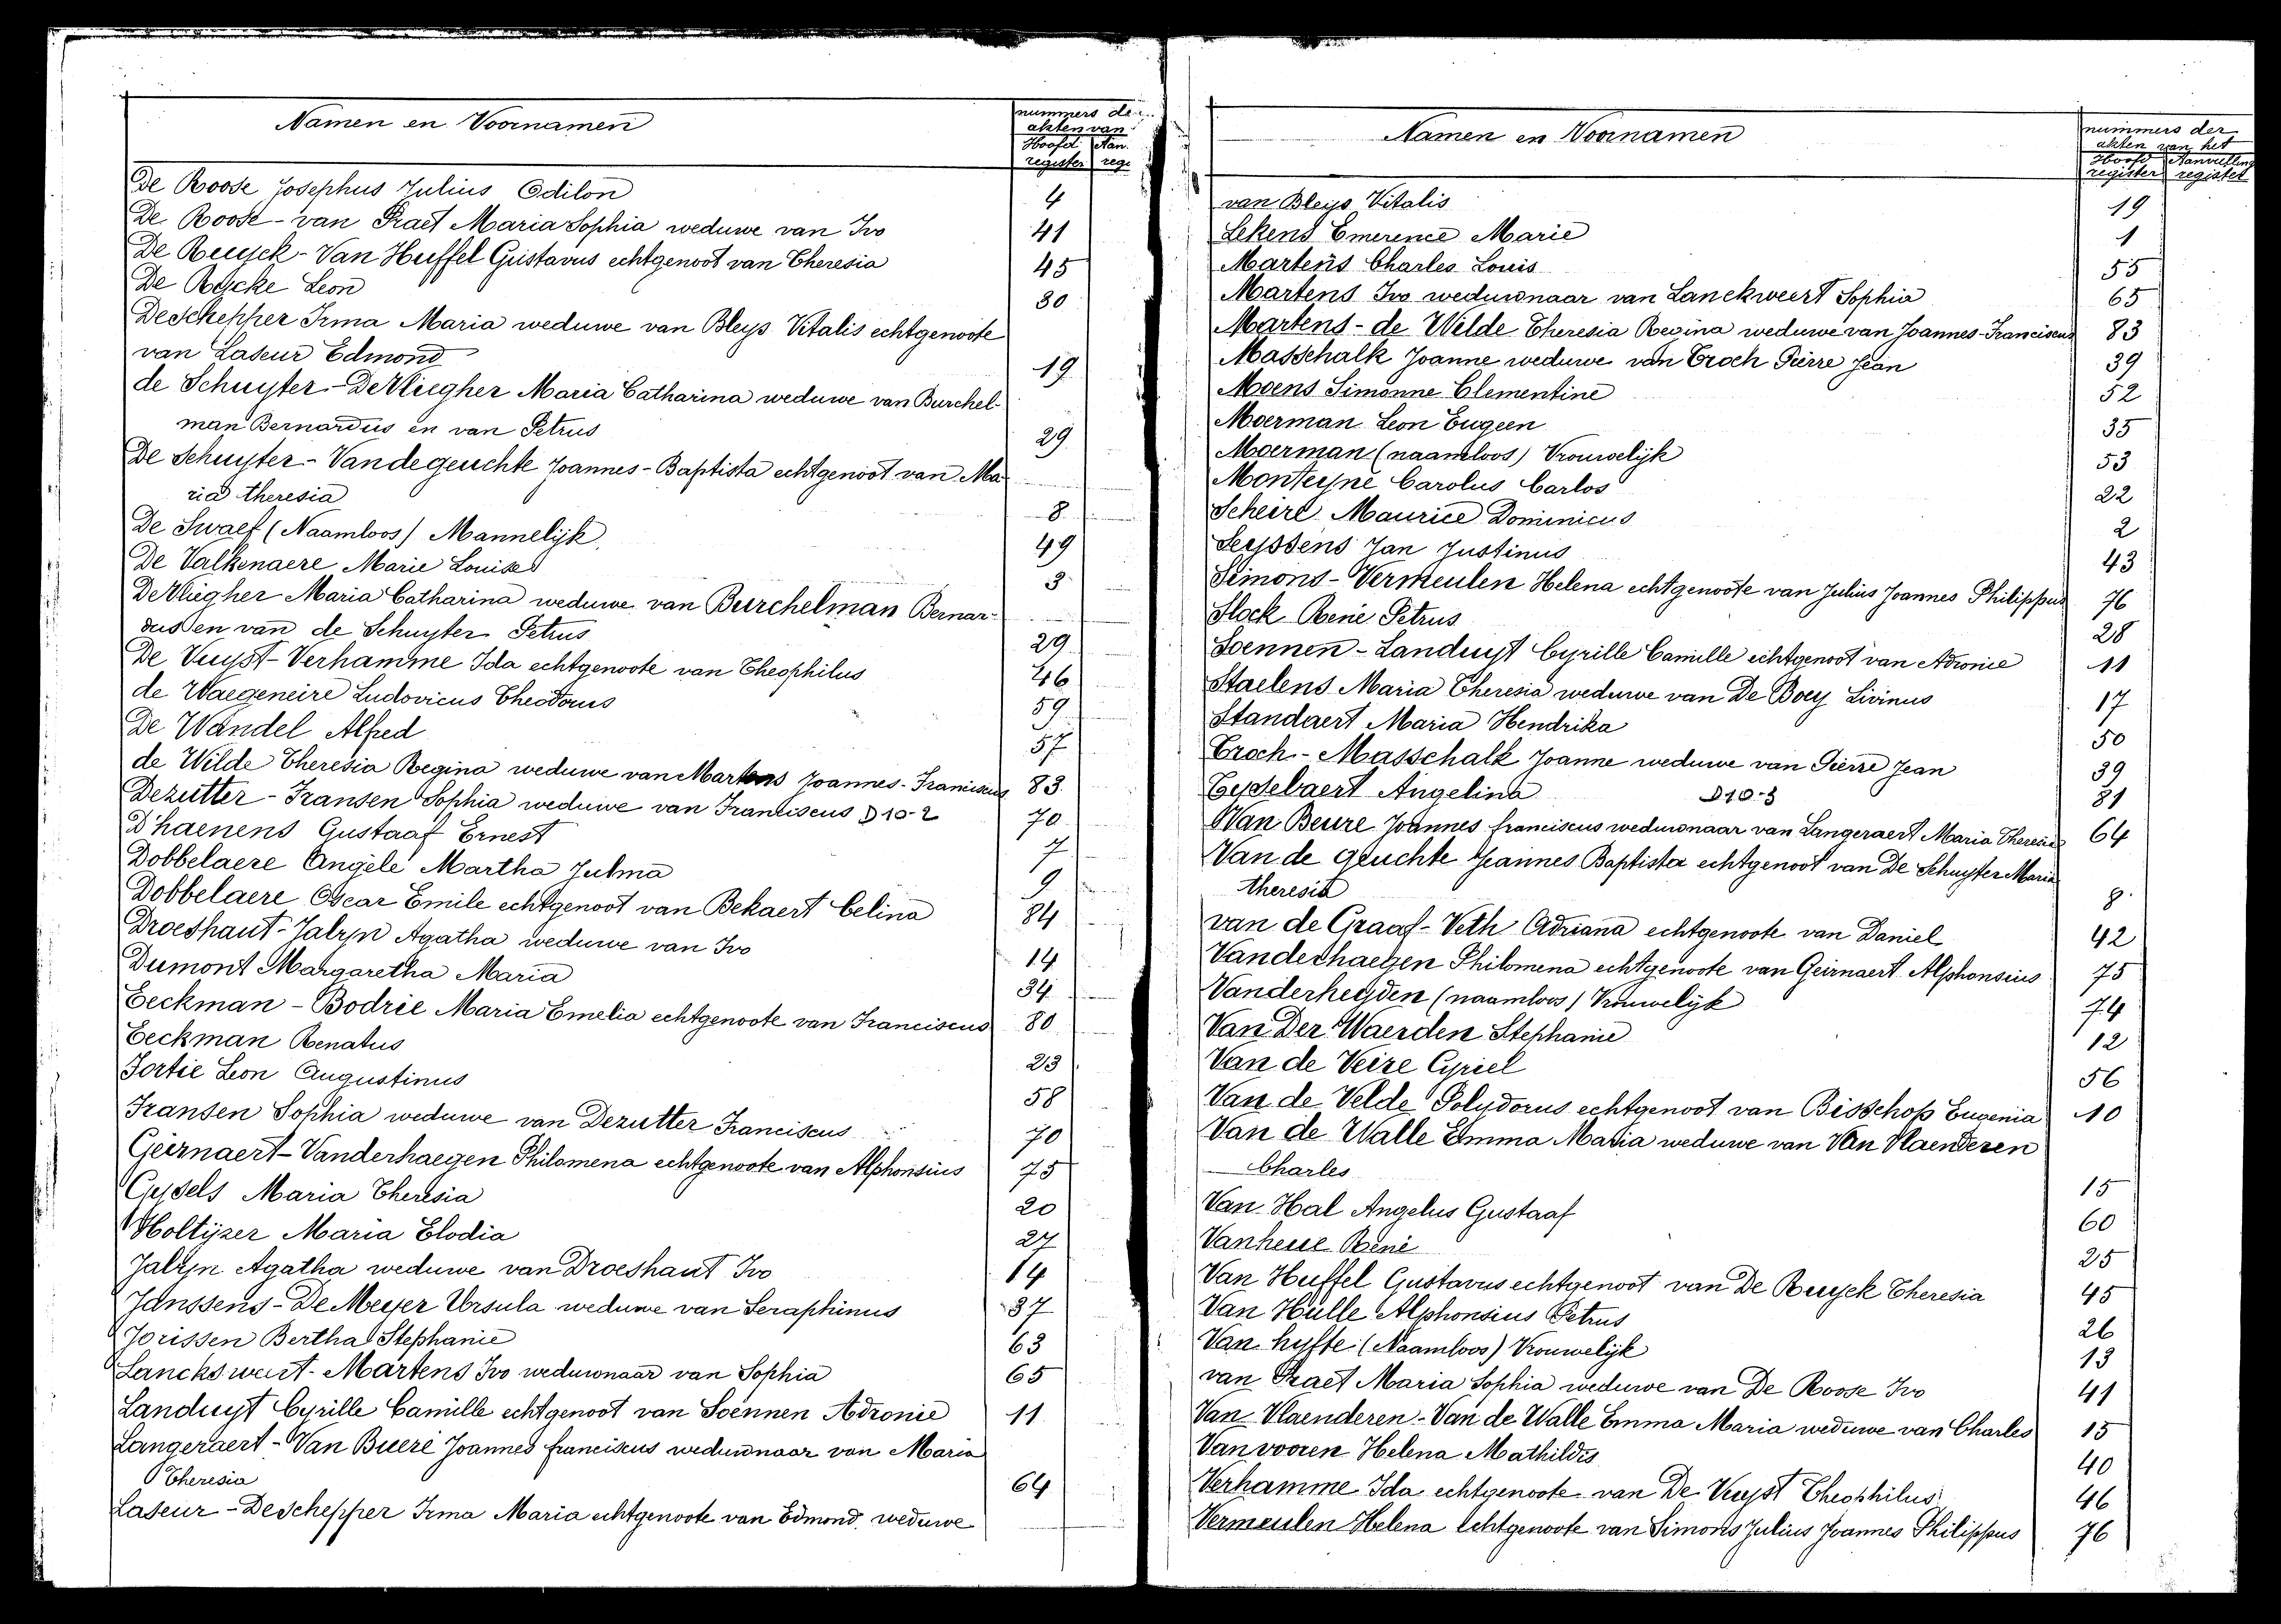 Namen en Voornamen
nummers der
akten van
Hoofd Aan.
register reg.
De Roose Josephus Julius Odilon 4
De Roose - van Praet Maria Sophia weduwe van Ivo 41
De Ruyck - Van Huffel Gustavus echtgenoot van Theresia 45
De Rycke Leon 30
Deschepper Irma Maria weduwe van Bleys Vitalis echtgenoote
van Laseur Edmond 19
de Schuyter - De Vliegher Maria Catharina weduwe van Burchel-
man Bernardus en van Petrus 29
De Schuyter - Vandegeuchte Joannes - Baptista echtgenoot van Ma
ria theresia 8
De Swaef (Naamloos) Mannelijk. 49
De Valkenaere Marie Louise 3
De Vliegher Maria Catharina weduwe van Burchelman Bernar-
dus en van de Schuyter Petrus 29
De Vuyst - Verhamme Ida echtgenoote van Theophilus 46
de Waegeneire Ludovicus Theodorus 59
De Wandel Alfred 57
de Wilde Theresia Regina weduwe van Martens Joannes - Franciscus 83
Dezutter - Fransen Sophia weduwe van Franciscus D 10-2 70
D'haenens Gustaaf Ernest 7
Dobbelaere Angèle Martha Julma 9
Dobbelaere Oscar Emile echtgenoot van Bekaert Celina 84
Droeshaut - Jalryn Agatha weduwe van Ivo 14
Dumont Margaretha Maria 34
Eeckman - Bodrie Maria Emelia echtgenoote van Franciscus 80
Eeckman Renatus 23
Fortie Leon Augustinus 58
Fransen Sophia weduwe van Dezutter Franciscus 70
Geirnaert - Vanderhaegen Philomena echtgenoote van Alphonsius 75
Gysels Maria Theresia 20
Holtyzer Maria Elodia 27
Jalryn Agatha weduwe van Droeshaut Ivo 14
Janssens - De Meyer Ursula weduwe van Seraphinus 37
Jorissen Bertha Stephanie 63
Lanckswert - Martens Ivo weduwnaar van Sophia 65
Landuyt Cyrille Camille echtgenoot van Soennen Adronie 11
Langeraert - Van Buere Joannes franciscus weduwnaar van Maria
Theresia 64
Laseur - Deschepper Irma Maria echtgenoote van Edmond, weduwe
Namen en Voornamen
nummers der
akten van het
Hoofd Aanvulling
register register
van Bleys Vitalis 19
Lekens Emerence Marie 1
Martens Charles Louis 55
Martens Ivo weduwnaar van Lanckweert Sophia 65
Martens - de Wilde Theresia Regina weduwe van Joannes - Franciscus 83
Masschalk Joanne weduwe van Troch Pierre Jean 39
Moens Simonne Clementine 52
Moerman Leon Eugeen 35
Moerman (naamloos) Vrouwelijk 53
Monteyne Carolus Carlos 22
Scheire Maurice Dominicus 2
Seyssens Jan Justinus 43
Simons - Vermeulen Helena echtgenoote van Julius Joannes Philippus 76
Slock René Petrus 28
Soennen - Landuyt Cyrille Camille echtgenoot van Adronie 11
Staelens Maria Theresia weduwe van De Boey Livinus 17
Standaert Maria Hendrika 50
Troch - Masschalk Joanne weduwe van Pierre Jean 39
Eysselbaert Angelina D 10-3 81
Van Beure Joannes franciscus weduwnaar van Langeraert Maria Theresia 64
Van de geuchte Joannes Baptista echtgenoot van De Schuyter Maria
theresia 8
van de Graaf - Veth Adriana echtgenoote van Daniel 42
Vanderhaegen Philomena echtgenoote van Geirnaert Alphonsius 75
Vanderheyden (naamloos) Vrouwelijk 74
Van Der Waerden Stephanie 12
Van de Veire Cyriel 56
Van de Velde Polydorus echtgenoot van Bisschop Eugenia 10
Van de Walle Emma Maria weduwe van Van Vlaenderen
Charles 15
Van Hal Angelus Gustaaf 60
Vanheule René 25
Van Huffel Gustavus echtgenoot van De Ruyck Theresia 45
Van Hulle Alphonsius Petrus 26
Van hyfte (Naamloos) Vrouwelijk 13
van Praet Maria Sophia weduwe van De Roose Ivo 41
Van Vlaenderen - Van de Walle Emma Maria weduwe van Charles 15
Van vooren Helena Mathildis 40
Verhamme Ida echtgenoote van De Vuyst Theophilus 46
Vermeulen Helena echtgenoote van Simons Julius Joannes Philippus 76